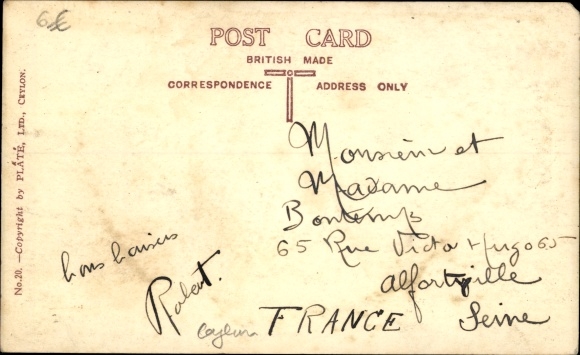 6€
POST CARD
BRITISH MADE
CORRESPONDENCE ADDRESS ONLY
No.20. —Copyright by PLÂTÉ, LTD., CEYLON.
Monsieur et
Madame
Bontemps
65 Rue Victor Hugo 65
Alfortville
Seine
FRANCE
bons baisers
Robert.
Ceylan